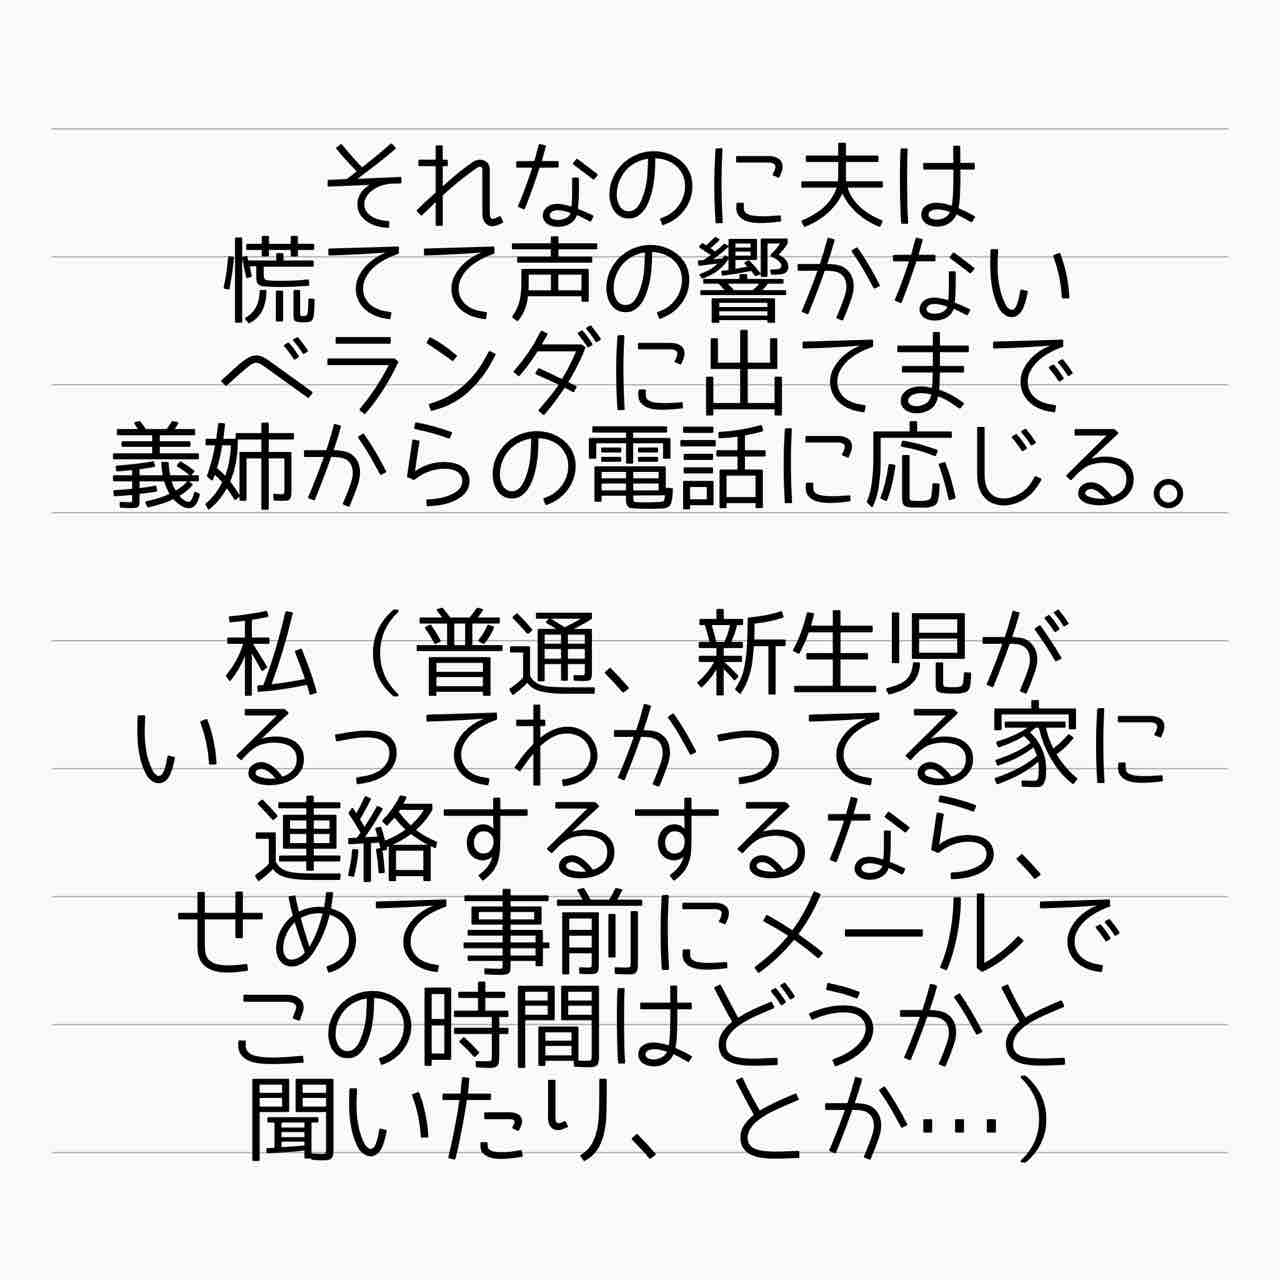 それなのに夫は
慌てて声の響かない
ベランダに出てまで
義姉からの電話に応じる。
私（普通、新生児が
いるってわかってる家に
連絡するするなら、
せめて事前にメールで
この時間はどうかと
聞いたり、とか…）